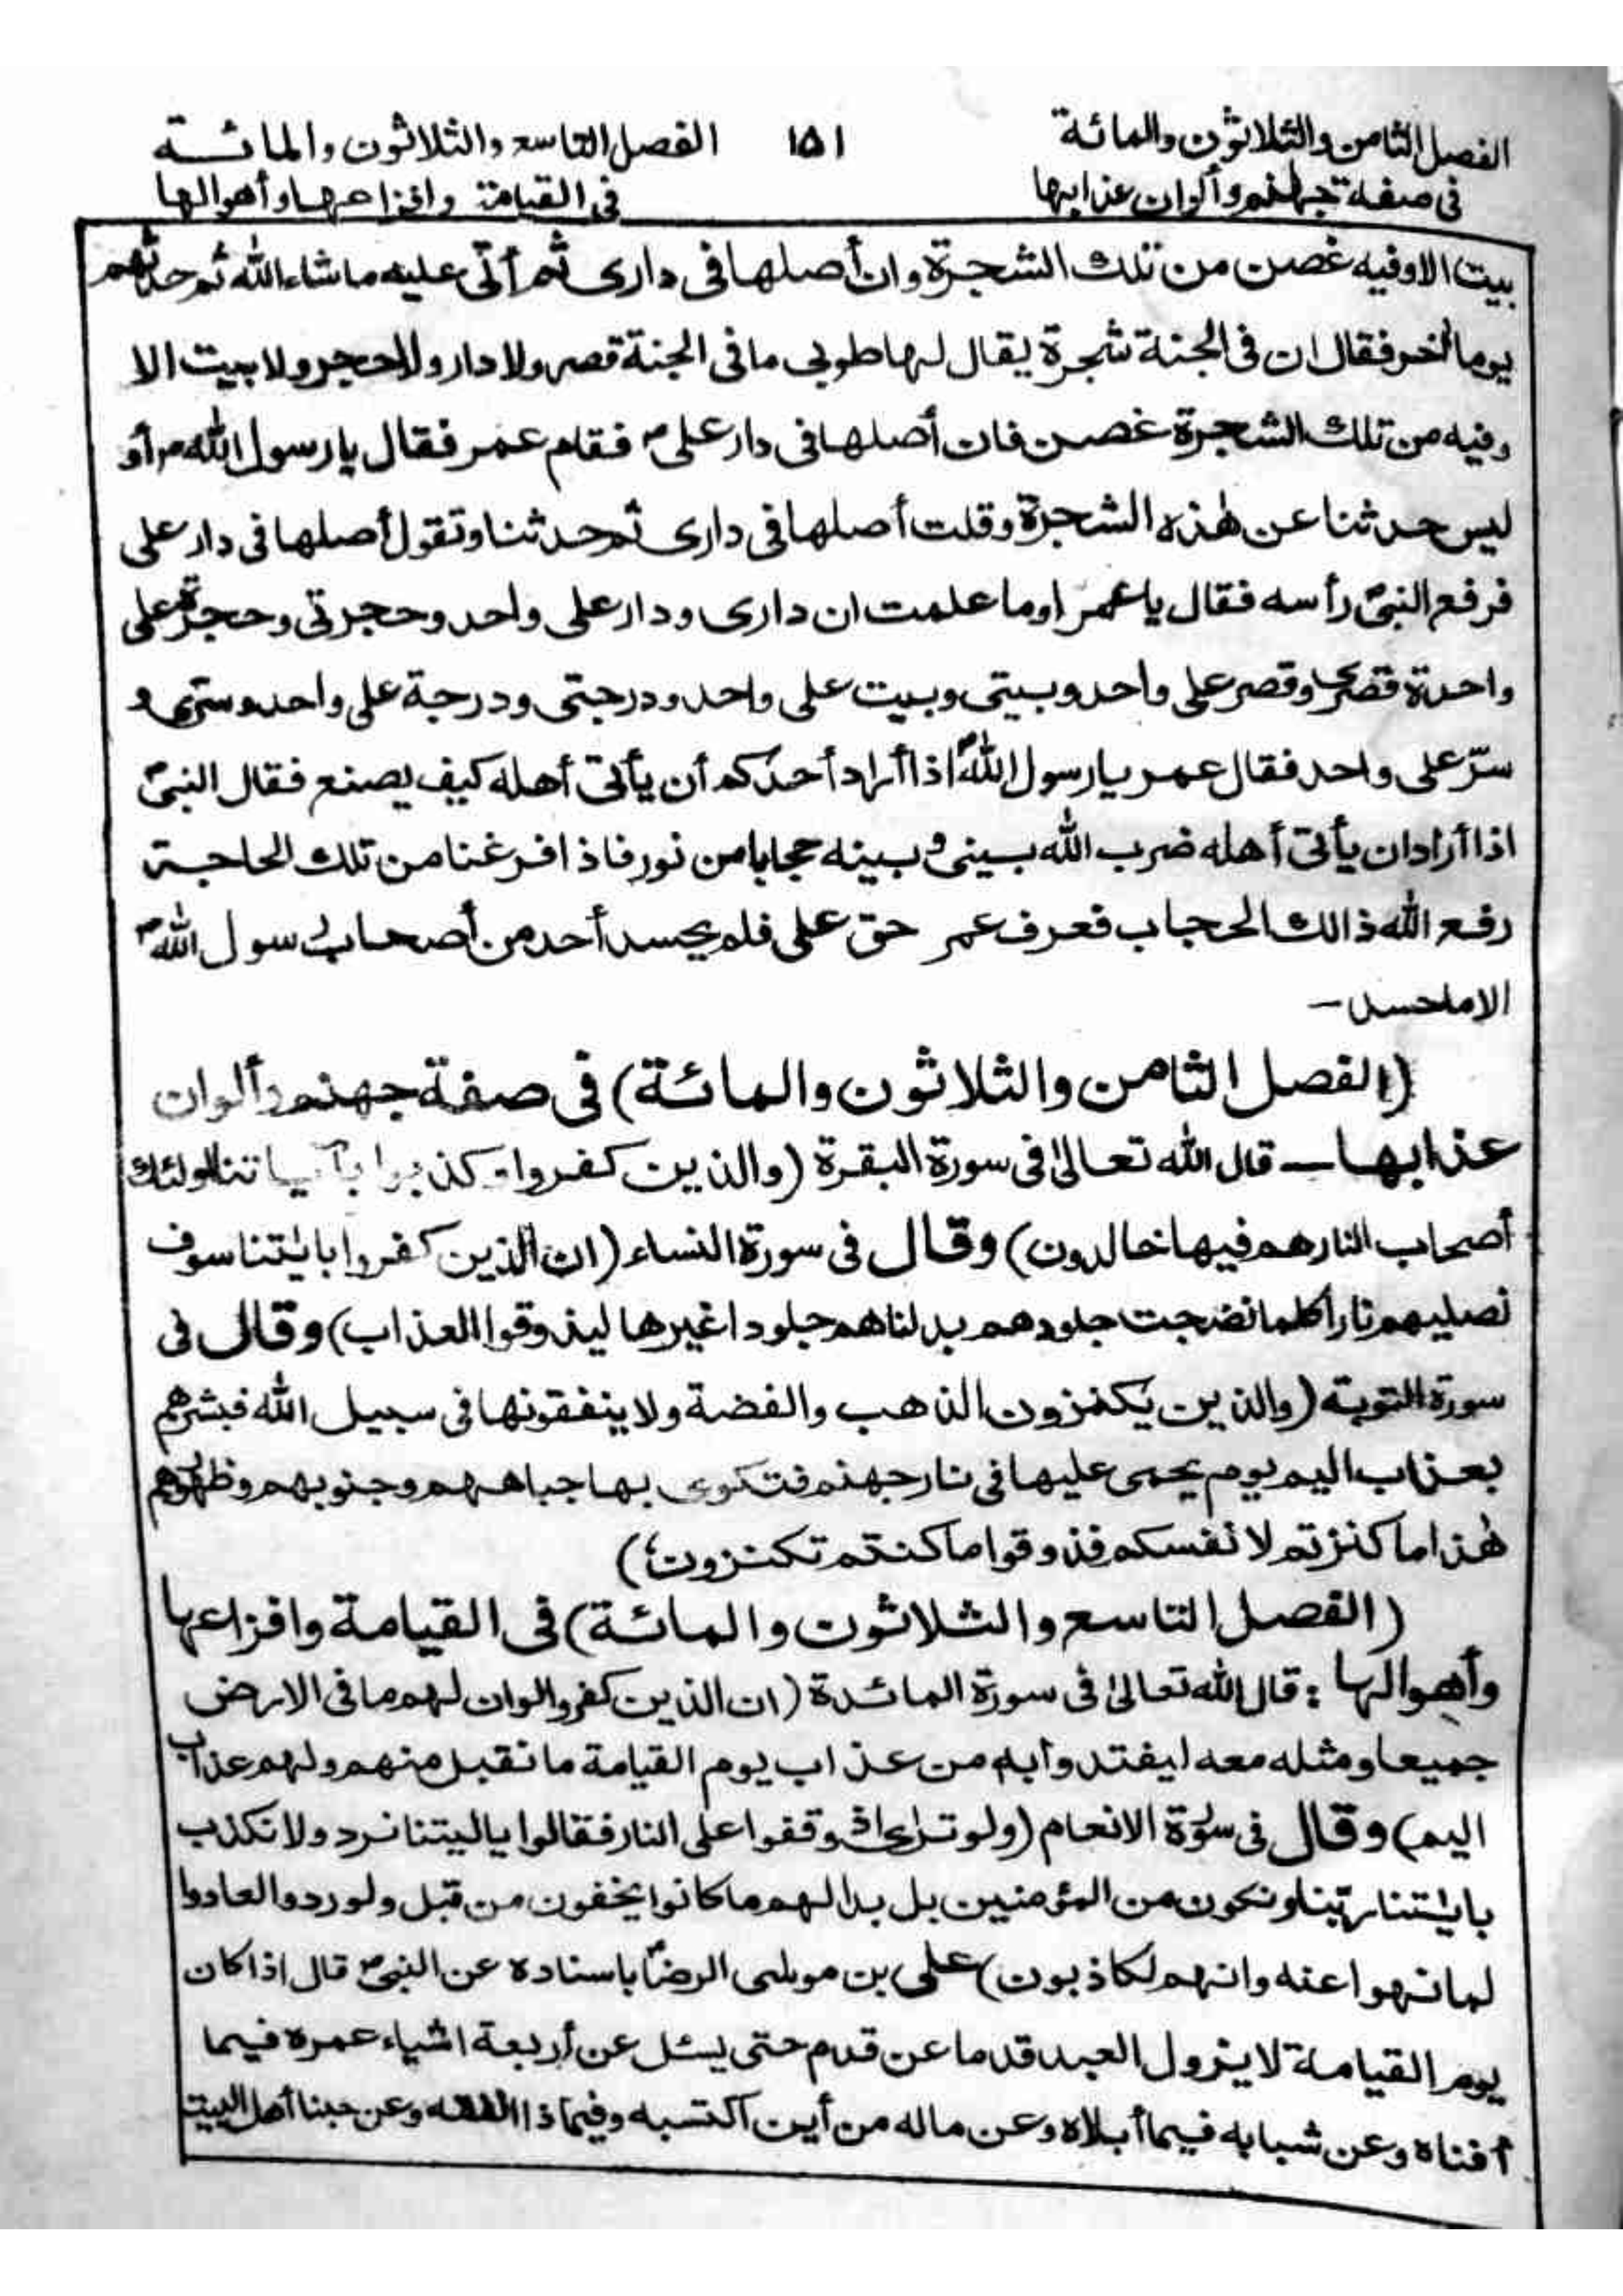 الفصل الثامن والثلاثون والمائة ١٥١ الفصل التاسع والثلاثون والمائة
فى صفة جهنم وألوان عذابها فى القيامة وافزاعها وأهوالها
بيت الا وفيه غصن من تلك الشجرة وان أصلها فى دارى ثم أتى عليه ماشاء الله ثم حدثهم
يوما آخر فقال ان فى الجنة شجرة يقال لها طوبى ما فى الجنة قصر ولا دار ولا حجر ولا بيت الا
وفيه من تلك الشجرة غصن فان أصلها فى دار على ؑ فقام عمر فقال يا رسول الله ؐ أو
ليس حدثنا عن هٰذه الشجرة وقلت أصلها فى دارى ثم حدثنا وتقول أصلها فى دار على
فرفع النبىؐ رأسه فقال يا عمر اوما علمت ان دارى ودار على واحد وحجرتى وحجرة على
واحدة قصرى وقصر على واحد وبيتى وبيت على واحد ودرجتى ودرجة على واحد وسترى و
سرّ على واحد فقال عمر يا رسول اللهؐ اذا أراد أحدكم أن يأتى أهله كيف يصنع فقال النبىؐ
اذا أراد ان يأتى أهله ضرب الله بينى و بينه حجابا من نور فاذ افرغنا من تلك الحاجة
رفع الله ذالك الحجاب فعرف عمر حق على فلم يحسد أحد من أصحاب رسول اللهؐ
الا ما حسد –
(الفصل الثامن والثلاثون والمائة) فى صفة جهنم وألوان
عذابها — قال الله تعالىٰ فى سورة البقرة (والذين كفروا وكذبوا بآياتنا اولئك
أصحاب النار هم فيها خالدون) وقال فى سورة النساء (ان الذين كفروا بايٰتنا سوف
نصليهم نارا كلما نضجت جلودهم بدلناهم جلودا غيرها ليذوقوا العذاب) وقال فى
سورة التوبة (والذين يكنزون الذهب والفضة ولا ينفقونها فى سبيل الله فبشرهم
بعذاب اليم يوم يحمى عليها فى نار جهنم فتكوى بها جباههم وجنوبهم وظهورهم
هٰذا ما كنزتم لا نفسكم فذوقوا ما كنتم تكنزون)
(الفصل التاسع والثلاثون والمائة) فى القيامة وافزاعها
وأهوالها : قال الله تعالىٰ فى سورة المائدة (ان الذين كفروا لوان لهم ما فى الارض
جميعا ومثله معه ليفتدوا به من عذاب يوم القيامة ما تقبل منهم ولهم عذاب
اليم) وقال فى سورة الانعام (ولو ترىٰ اذ وقفوا على النار فقالوا يا ليتنا نرد ولا نكذب
بايٰتنا ربنا ونكون من المؤمنين بل بدا لهم ما كانوا يخفون من قبل ولو ردوا لعادوا
لما نهوا عنه وانهم لكاذبون) على بن موسٰى الرضاؑ باسناده عن النبىؐ قال اذا كان
يوم القيامة لا يزول العبد قدما عن قدم حتى يسئل عن أربعة اشياء عمره فيما
أفناه وعن شبابه فيما أبلاه وعن ماله من أين اكتسبه وفيما ذا انفقه وعن حبنا أهل البيت